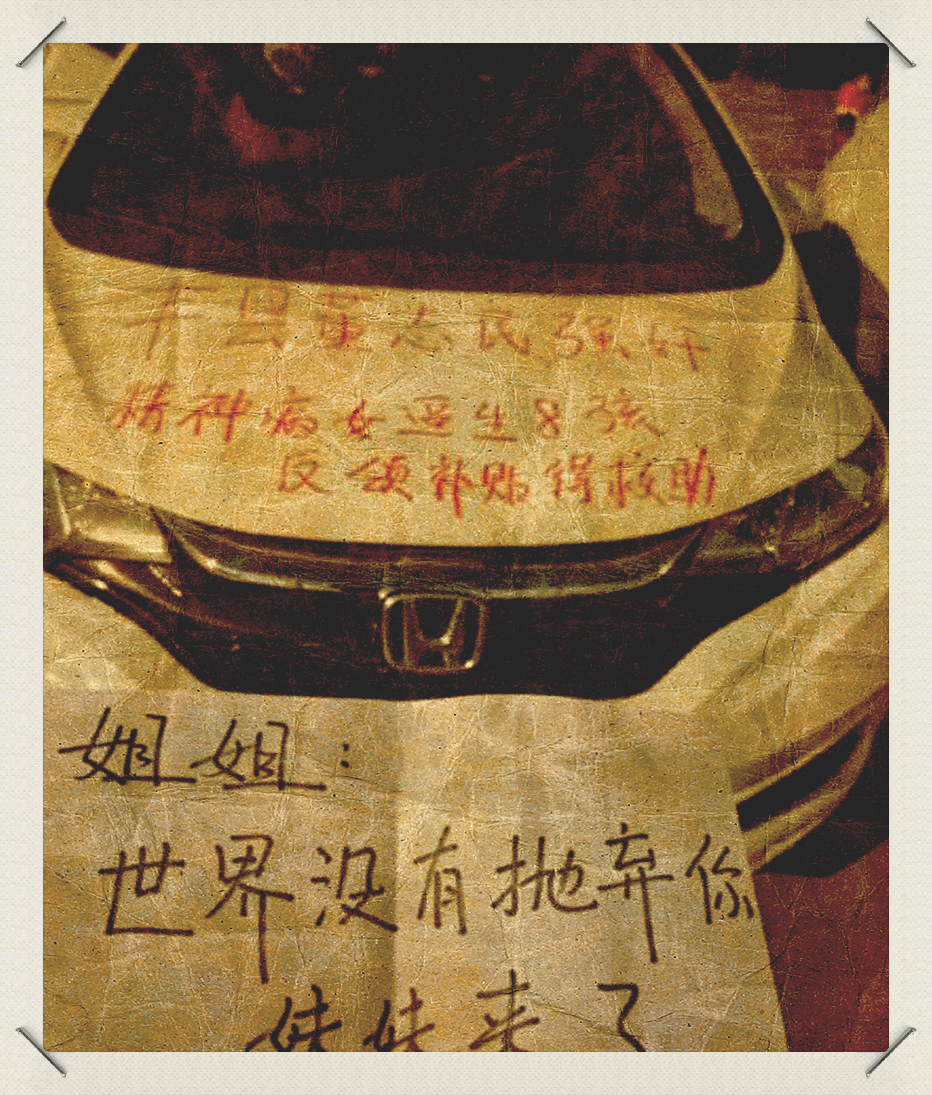 丰县董志民强奸
精神病女逼生8孩
反领补贴得救助
姐姐：
世界没有抛弃你
妹妹来了